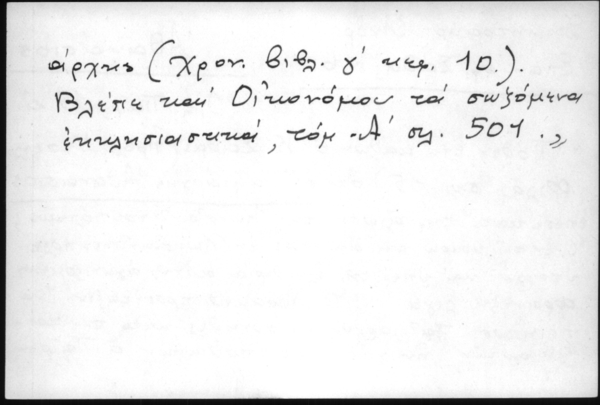 άρχης (Χρον. βιβλ. γ' κεφ. 10.).
Βλέπε και Οικονόμου τά σωζόμενα
ἐκκλησιαστικά, τόμ. Α' σλ. 501.»